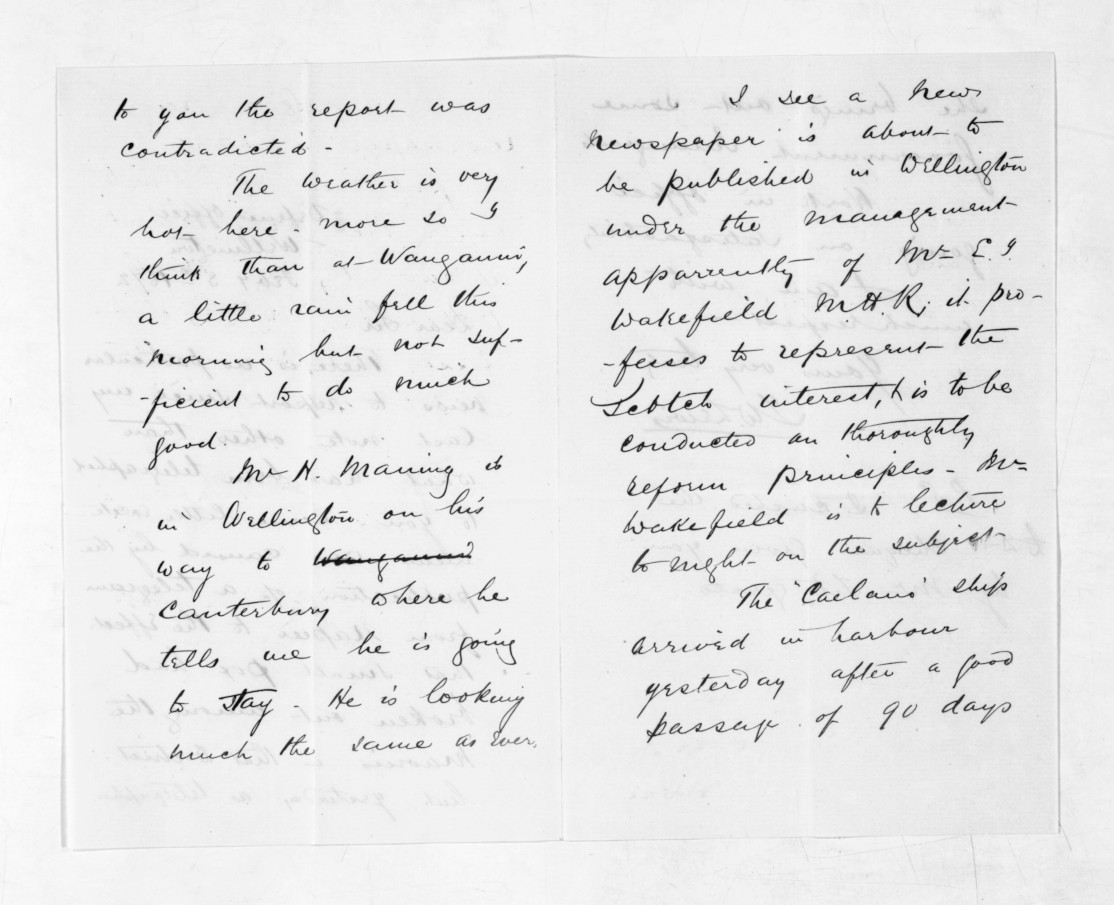 to you the report was
contradicted -
The weather is very
hot here - more so I
think than at Wanganui,
a little rain fell this
morning but not suf-
-ficient to do much
good.
Mr H. Maning is
in Wellington on his
way to Wanganui
Canterbury where he
tells me he is going
to stay - He is looking
much the same as ever.
I see a new
newspaper is about to
be published in Wellington
under the management
apparrently of Mr E. J.
Wakefield M H R, it pro-
-fesses to represent the
Scotch interest, & is to be
conducted on thoroughly
reform principles - Mr
Wakefield is to lecture
to night on the subject -
The ship
arrived in harbour
yesterday after a good
passage of 90 days